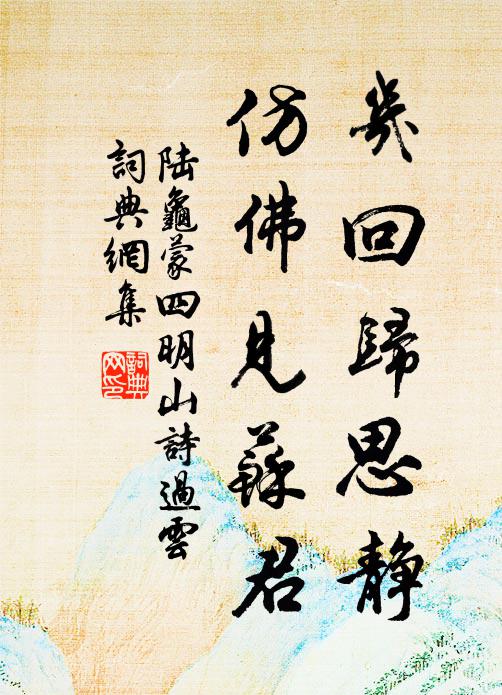 幾回歸思静
仿佛見蘇君
陆龜蒙四明山詩過雲
詞典網集
詞典网印